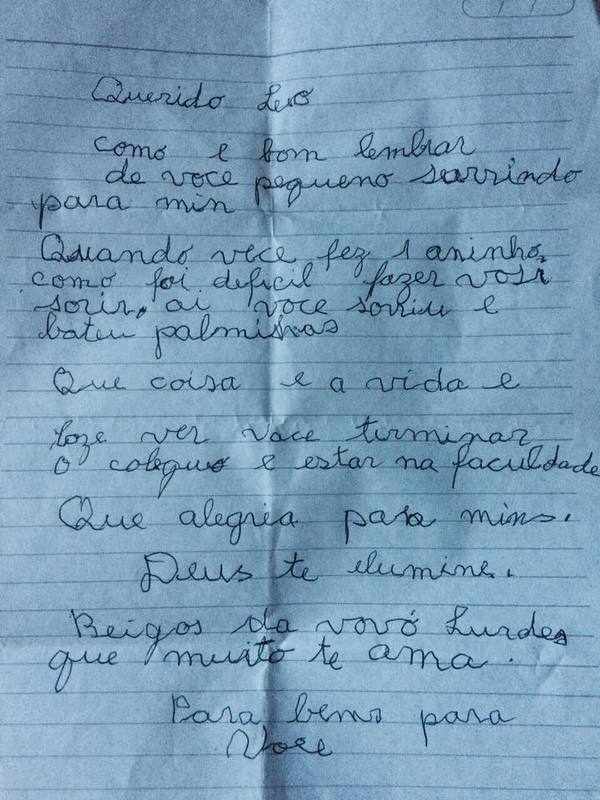 Querido Leo
como e bom lembrar
de voce pequeno sarrindo
para min
Quando vece fez 1 aninho,
como foi deficil fazer
sorir, ai voce sorriu e
bateu palminhas
Que coisa e a vida e
loze ver voce terminar
o colequo e estar na faculdade
Que alegria para mins.
Deus te elumine.
Beigos da vovó Lurdes
que muito te ama.
Para bens para
Voce